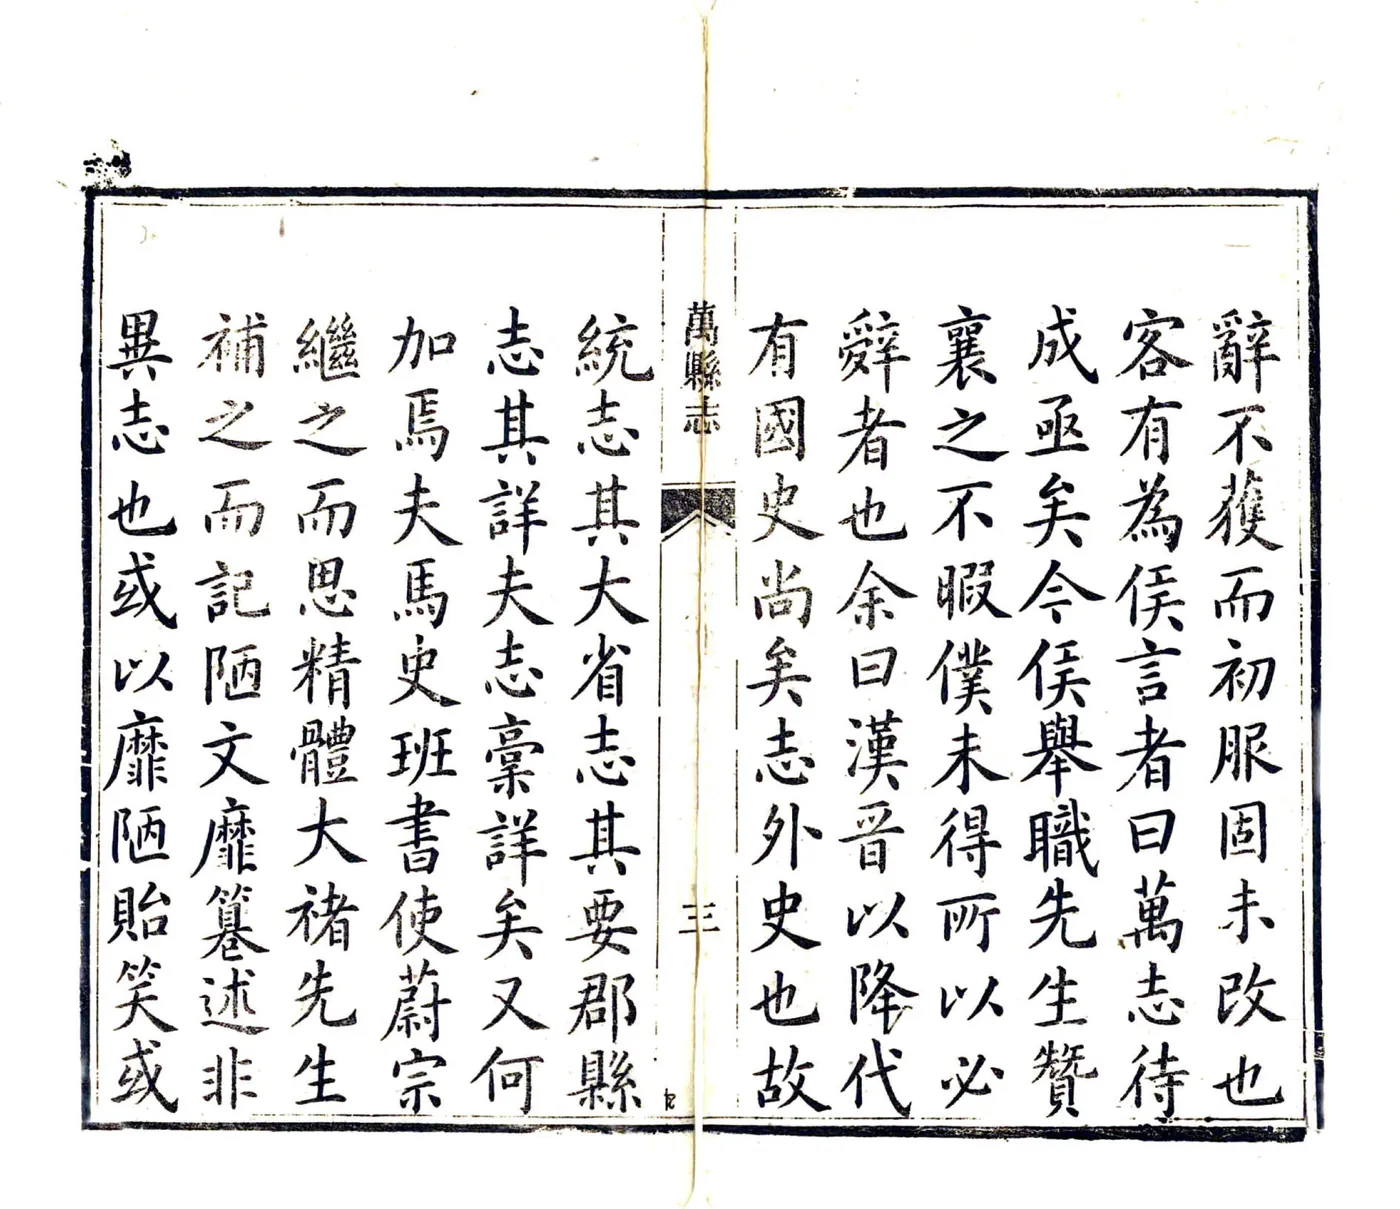 辭不獲而初服固未改也
客有為侯言者曰萬志待
成亟矣今侯舉職先生贊
襄之不暇僕未得所以必
辤者也余曰漢晉以降代
有國史尚矣志外史也故
萬縣志
三
統志其大省志其要郡縣
志其詳夫志稾詳矣又何
加焉夫馬史班書使蔚宗
繼之而思精體大褚先生
補之而記陋文靡篹述非
異志也或以靡陋貽笑或